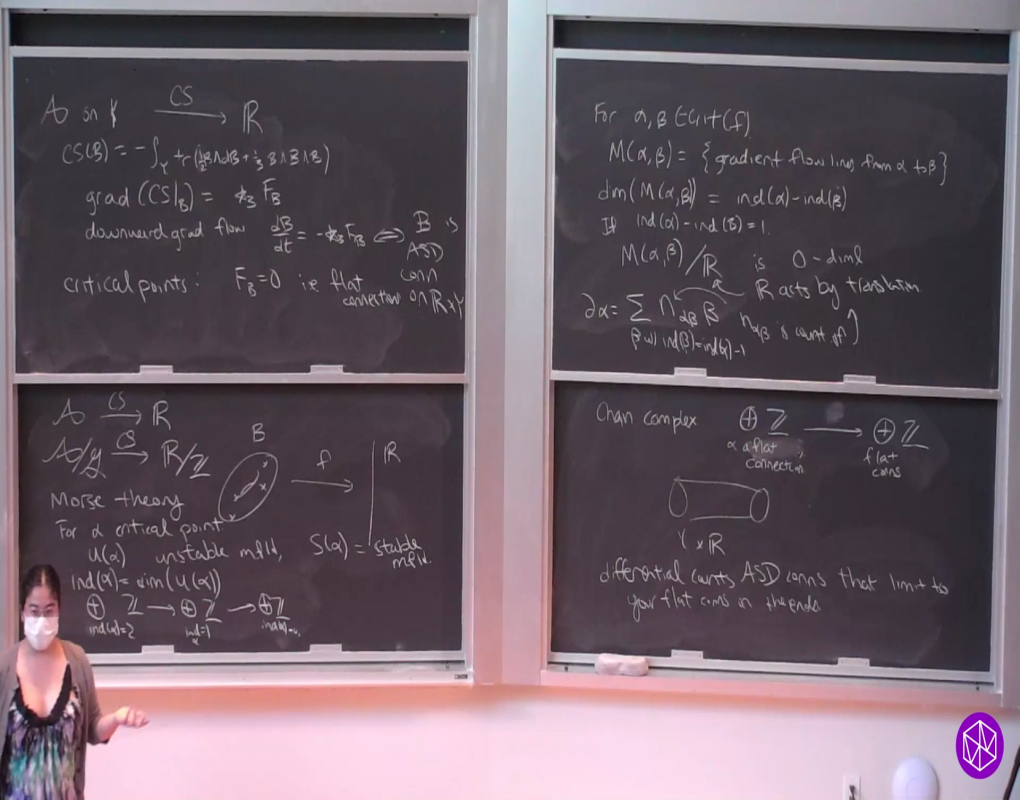 A on Y CS → ℝ
CS(B) = - ∫_Y tr(½ B∧dB + ⅓ B∧B∧B)
grad(CS|_B) = *₃ F_B
downward grad flow dB/dt = -*₃ F_B ⟺ B is ASD conn on ℝ×Y
critical points: F_B = 0 i.e. flat connection
A CS → ℝ
A/g CS → ℝ/ℤ
B f → ℝ
Morse theory
For α critical point
U(α) unstable mfld, S(α) = stable mfld.
ind(α) = dim(U(α))
⊕ ℤ → ⊕ ℤ → ⊕ ℤ
ind(α)=2 ind=1
For α, β ∈ Crit(f)
M(α,β) = {gradient flow lines from α to β}
dim(M(α,β)) = ind(α) - ind(β)
If ind(α) - ind(β) = 1.
M(α,β)/ℝ is 0-diml
ℝ acts by translation
∂α = Σ n_αβ β n_αβ is count of
β w/ ind(β)=ind(α)-1
Chain complex ⊕ ℤ → ⊕ ℤ
α a flat connection, flat conns
Y × ℝ
differential counts ASD conns that limit to
your flat conns on the ends